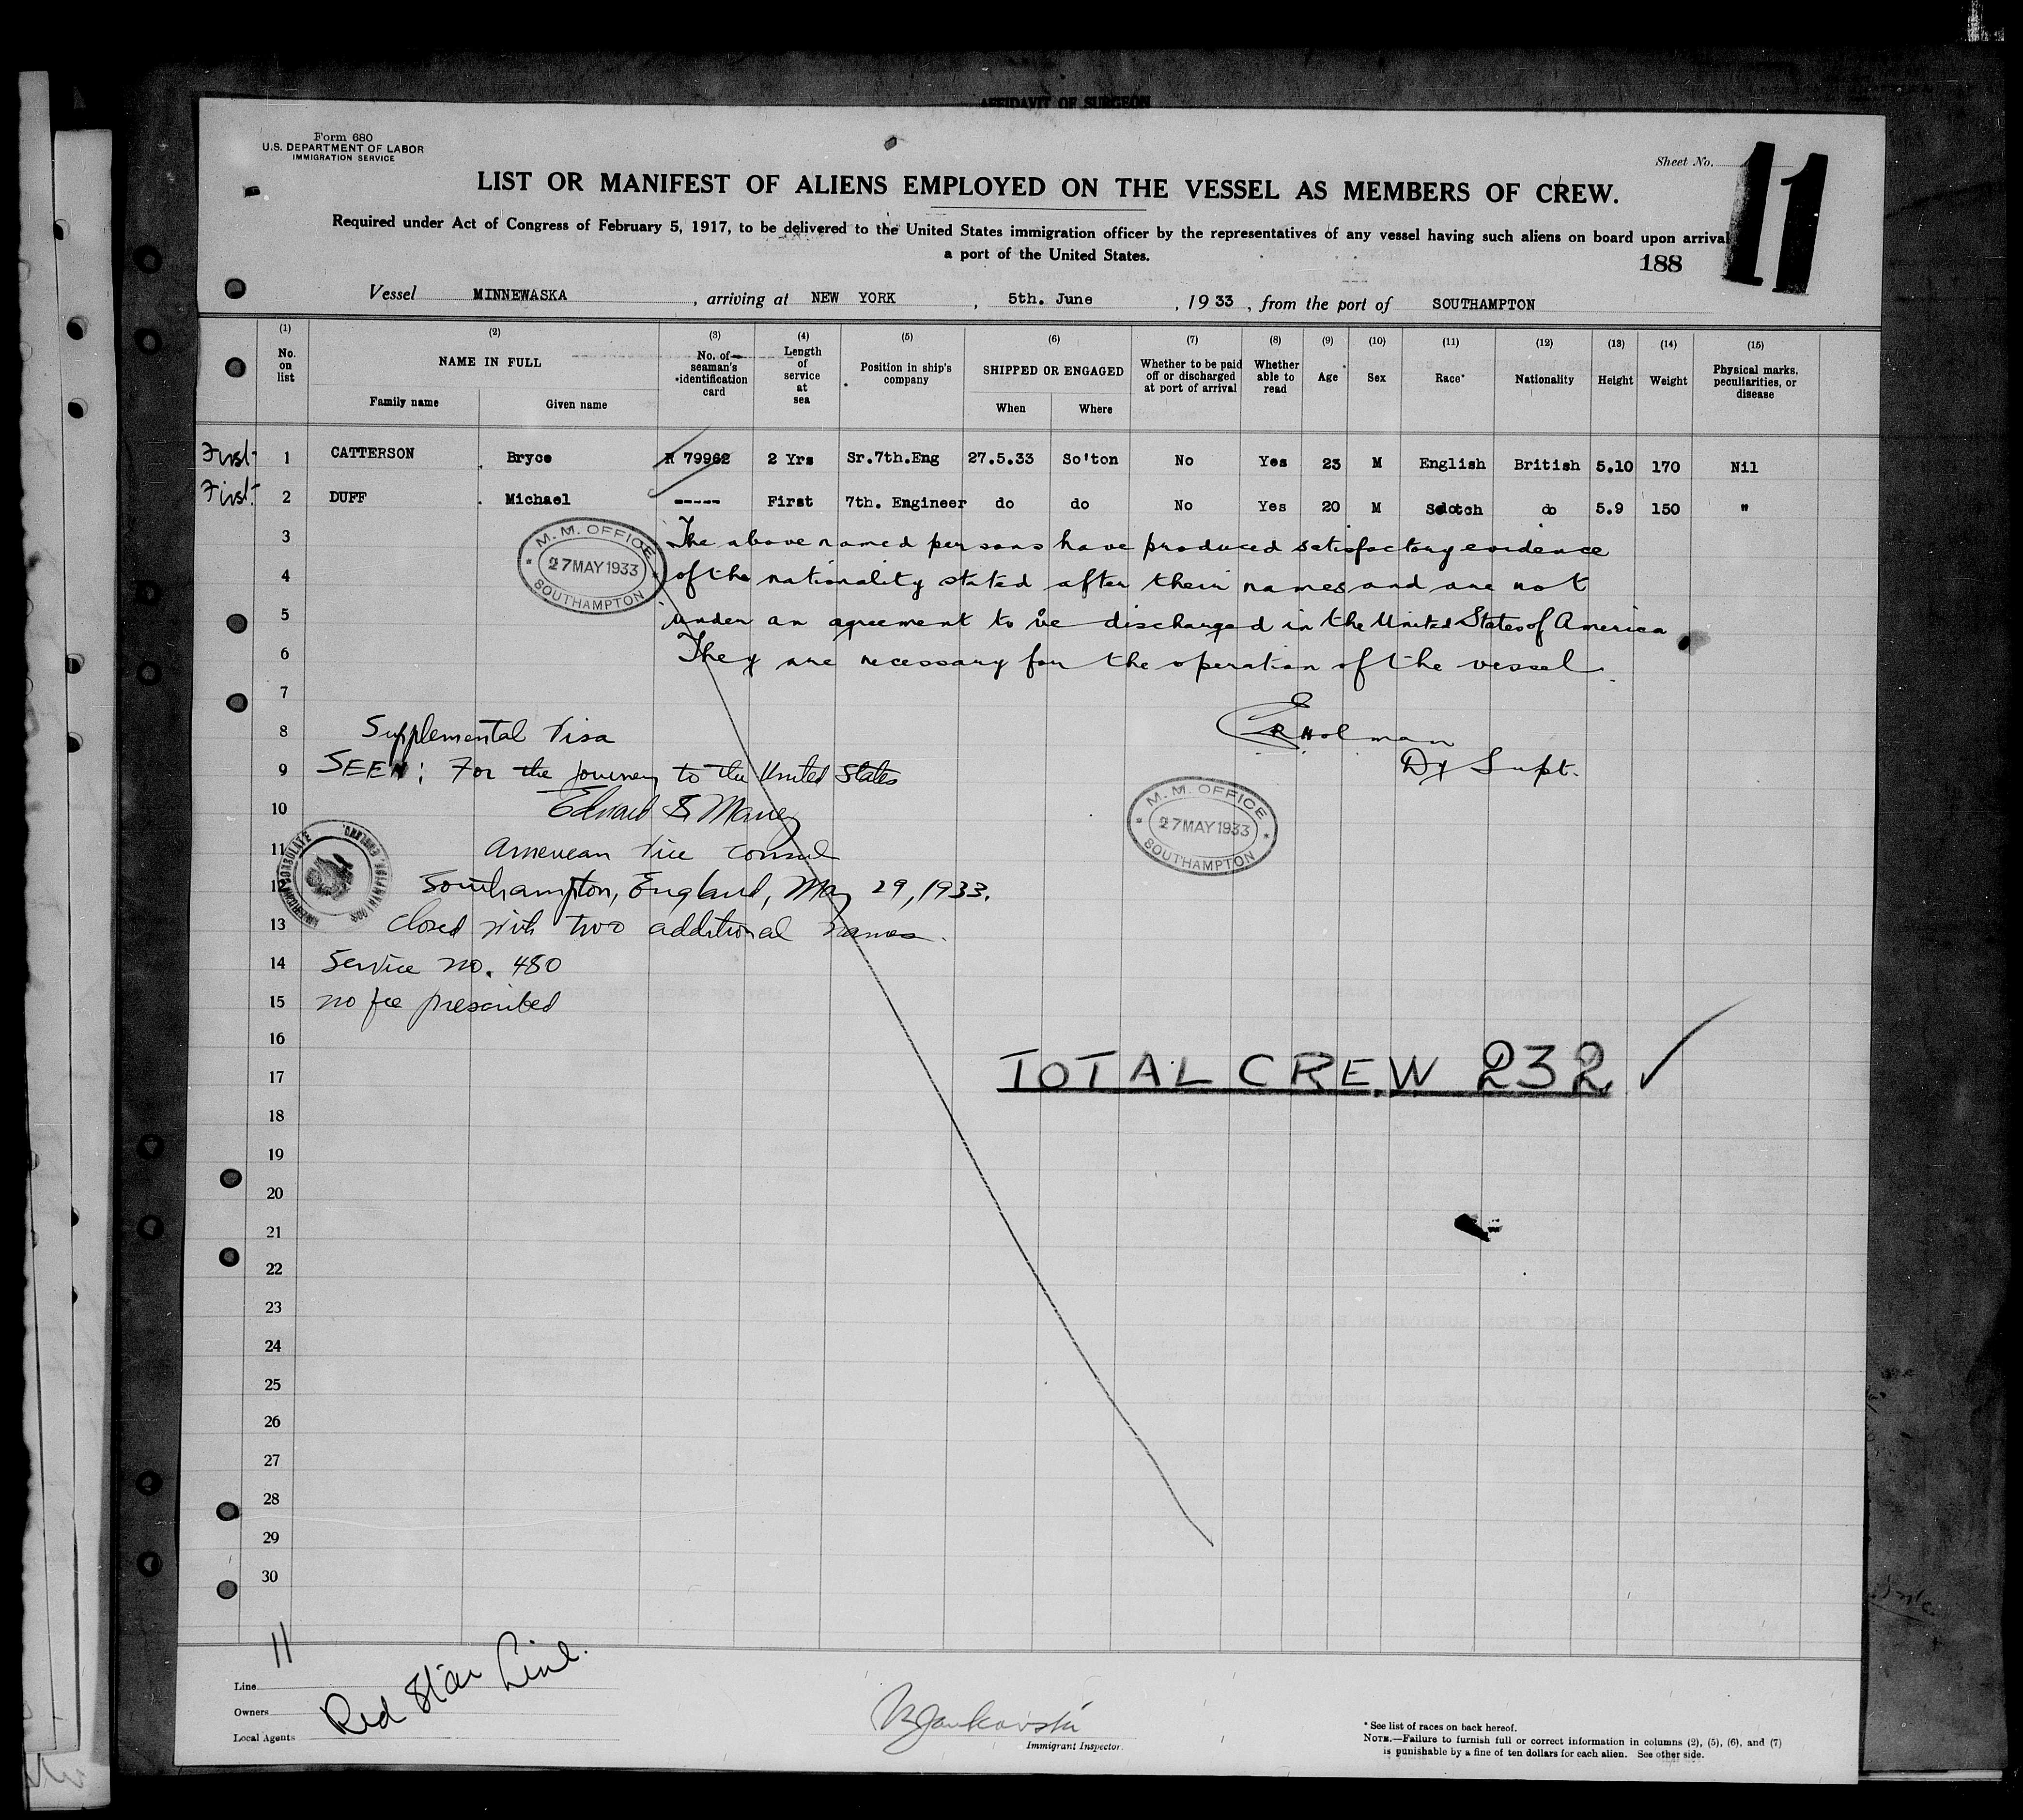 AFFIDAVIT OF SURGEON
Form 680
U.S. DEPARTMENT OF LABOR
IMMIGRATION SERVICE
Sheet No.
11
LIST OR MANIFEST OF ALIENS EMPLOYED ON THE VESSEL AS MEMBERS OF CREW.
Required under Act of Congress of February 5, 1917, to be delivered to the United States immigration officer by the representatives of any vessel having such aliens on board upon arrival
a port of the United States.
188
Vessel MINNEWASKA, arriving at NEW YORK, 5th. June, 1933, from the port of SOUTHAMPTON
(1) (2) (3) (4) (5) (6) (7) (8) (9) (10) (11) (12) (13) (14) (15)
No. on list
NAME IN FULL
Family name Given name
No. of seaman's identification card
Length of service at sea
Position in ship's company
SHIPPED OR ENGAGED
When Where
Whether to be paid off or discharged at port of arrival
Whether able to read
Age
Sex
Race*
Nationality
Height
Weight
Physical marks, peculiarities, or disease
First 1 CATTERSON Bryce R 79962 2 Yrs Sr.7th.Eng 27.5.33 So'ton No Yes 23 M English British 5.10 170 Nil
First 2 DUFF Michael ----- First 7th. Engineer do do No Yes 20 M Scotch do 5.9 150 "
3 The above named persons have produced satisfactory evidence
4 of the nationality stated after their names and are not
5 under an agreement to be discharged in the United States of America
6 They are necessary for the operation of the vessel.
M. M. OFFICE
27 MAY 1933
SOUTHAMPTON
7
Holman
Dy Supt.
M. M. OFFICE
27 MAY 1933
SOUTHAMPTON
8 Supplemental Visa
9 SEEN: For the journey to the United States
10 Edward S
11 American Vice Consul
12 Southampton, England, May 29, 1933.
13 Closed with two additional names.
14 Service no. 480
15 no fee prescribed
AMERICAN CONSULATE
SOUTHAMPTON, ENGLAND.
16
17
TOTAL CREW 232
18
19
20
21
22
23
24
25
26
27
28
29
30
11
Line
Owners
Local Agents
Red Star Line.
Immigrant Inspector.
* See list of races on back hereof.
NOTE.—Failure to furnish full or correct information in columns (2), (5), (6), and (7)
is punishable by a fine of ten dollars for each alien. See other side.